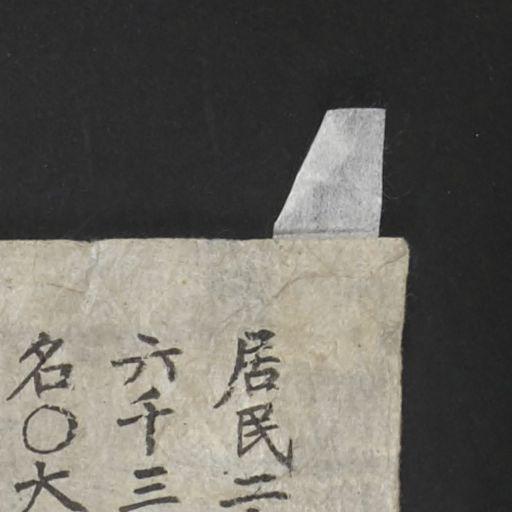 居民二
六千三
名〇大